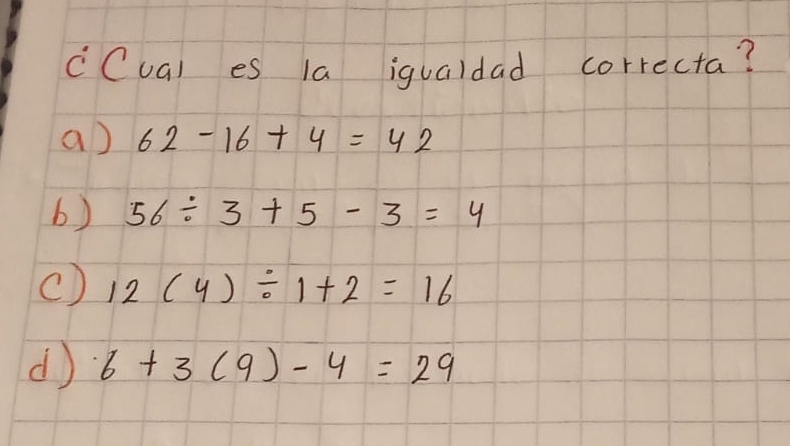 ¿Cual es la igualdad correcta?
a) 62 - 16 + 4 = 42
b) 56 ÷ 3 + 5 - 3 = 4
c) 12 (4) ÷ 1 + 2 = 16
d) 6 + 3 (9) - 4 = 29